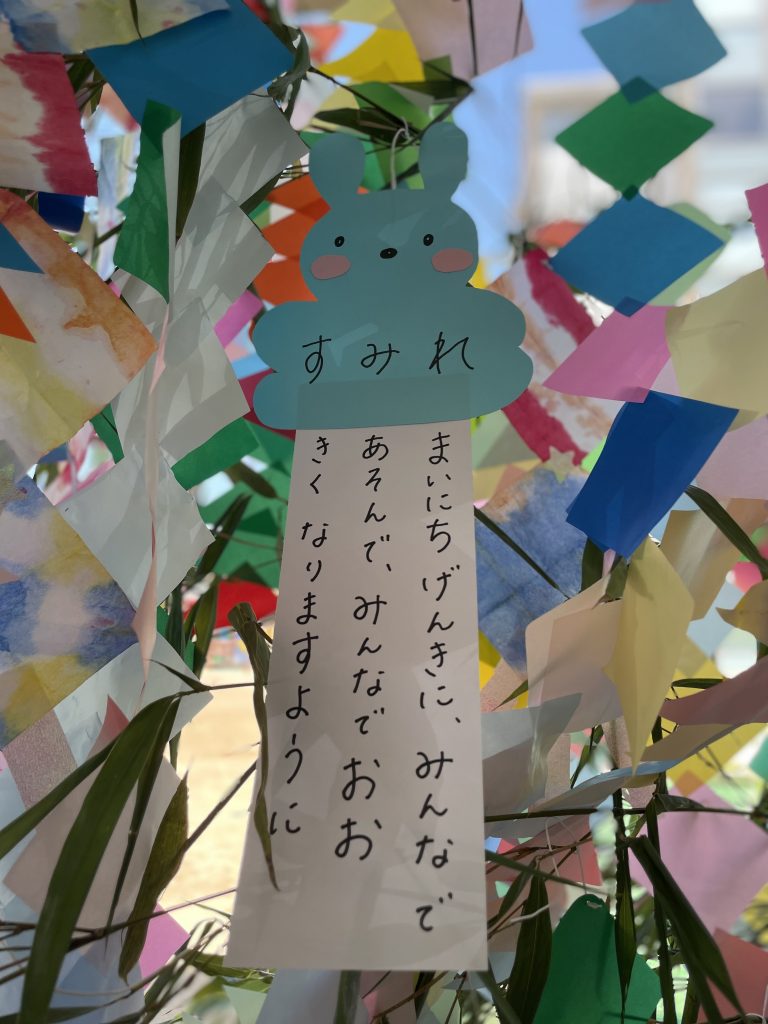 すみれ
まいにちげんきに、みんなで
あそんで、みんなでおお
きくなりますように